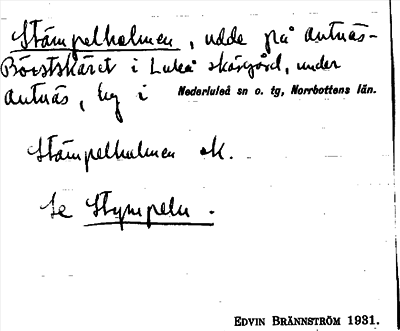 Stämpelholmen, udde på Antnäs-
Börstskäret i Luleå skärgård, under
Antnäs, by i Nederluleå sn o. tg, Norrbottens län.
Stämpelholmen ek.
Se Stympeln.
EDVIN BRÄNNSTRÖM 1931.